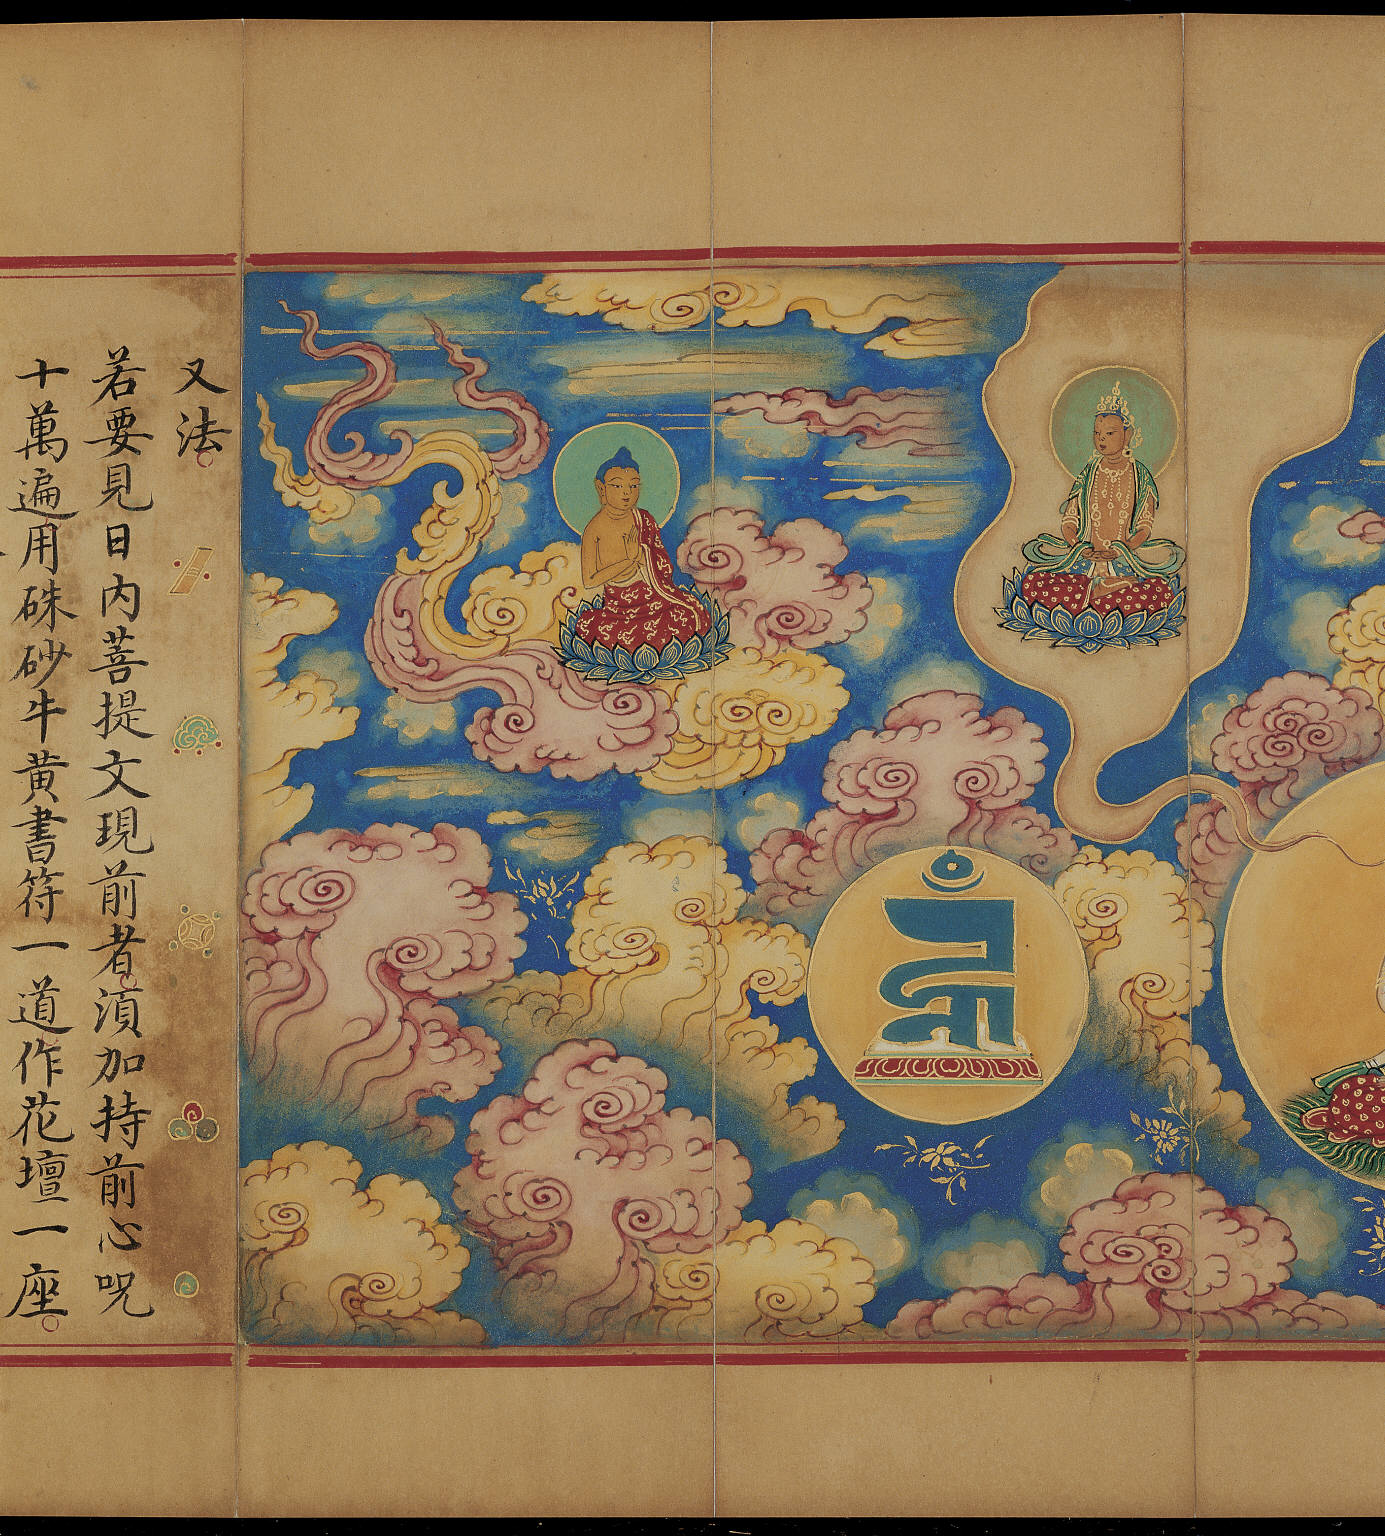 又法
若要見日内菩提文現前者湏加持前心呪
十萬遍用硃砂牛黄書符一道作花壇一座